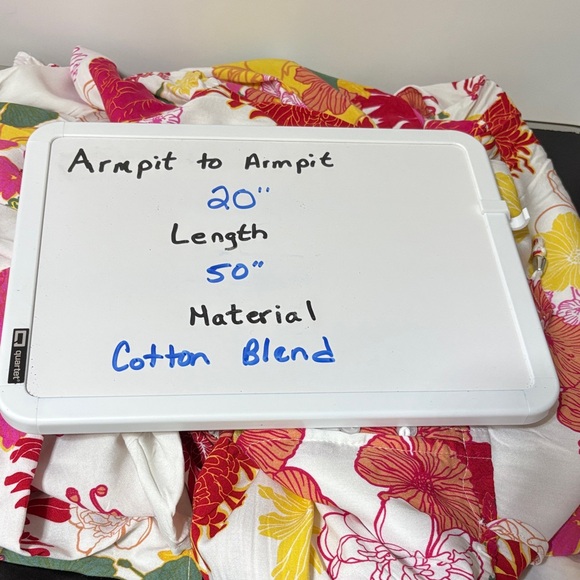 Armpit to Armpit
20"
Length
50"
Material
Cotton Blend
quartet